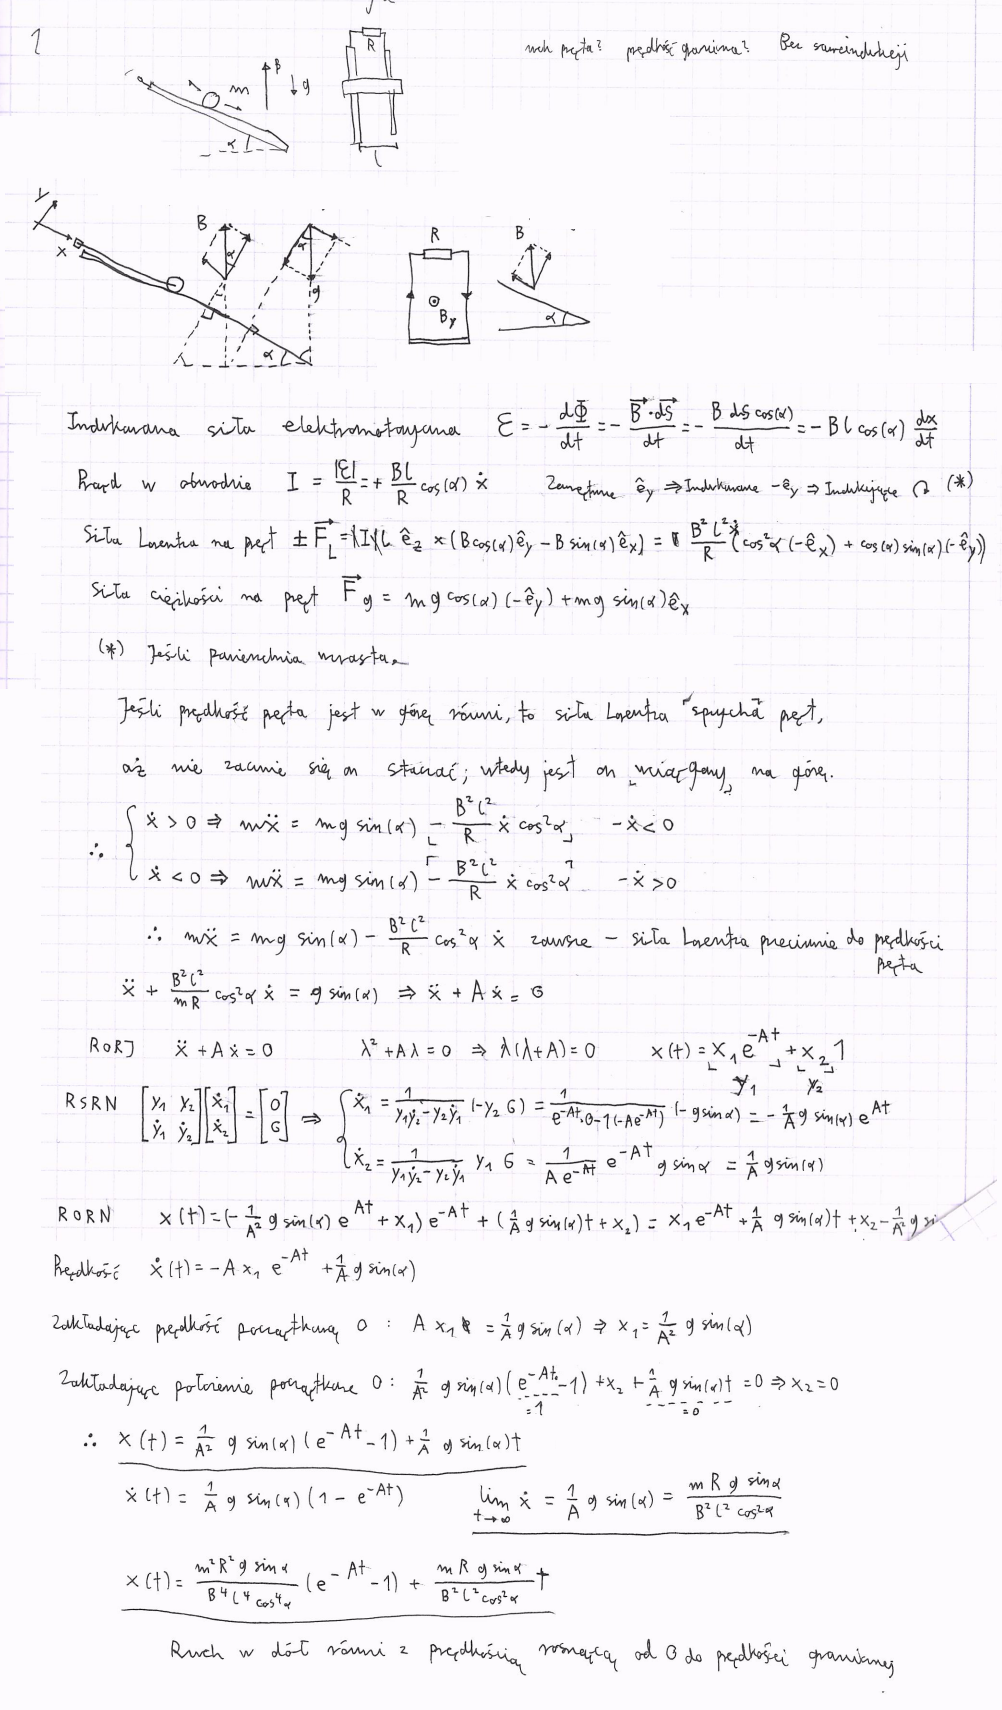 1
ruch pręta? prędkość graniczna? Bez samoindukcji
R
m
B
g
α
l
y
x
B
α
α
g
α
R
B_y
B
α
Indukowana siła elektromotoryczna ℰ = - dΦ/dt = - B⃗·dS⃗/dt = - B dS cos(α)/dt = - B l cos(α) dx/dt
Prąd w obwodzie I = |ℰ|/R = + Bl/R cos(α) ẋ Zewnętrzne ê_y ⇒ Indukowane -ê_y ⇒ Indukujące ↻ (*)
Siła Lorentza na pręt ± F⃗_L = |I| l ê_z × (B cos(α) ê_y - B sin(α) ê_x) = B² l² ẋ/R (cos²α (-ê_x) + cos(α) sin(α) (-ê_y))
Siła ciężkości na pręt F⃗_g = mg cos(α) (-ê_y) + mg sin(α) ê_x
(*) Jeśli powierzchnia wzrasta.
Jeśli prędkość pręta jest w górę równi, to siła Lorentza "spycha" pręt,
aż nie zacznie się on staczać; wtedy jest on „wciągany” na górę.
∴ { ẋ > 0 ⇒ mẍ = mg sin(α) - B² l²/R ẋ cos²α -ẋ < 0
ẋ < 0 ⇒ mẍ = mg sin(α) - B² l²/R ẋ cos²α -ẋ > 0
∴ mẍ = mg sin(α) - B² l²/R cos²α ẋ zawsze - siła Lorentza przeciwnie do prędkości
pręta
ẍ + B² l²/mR cos²α ẋ = g sin(α) ⇒ ẍ + A ẋ = G
RORJ ẍ + A ẋ = 0 λ² + A λ = 0 ⇒ λ(λ + A) = 0 x(t) = x₁ e^{-At} + x₂ 1
y₁ y₂
RSRN [y₁ y₂; ẏ₁ ẏ₂] [ẋ₁; ẋ₂] = [0; G] ⇒ { ẋ₁ = 1/(y₁ẏ₂ - y₂ẏ₁) (-y₂ G) = 1/(e^{-At}·0 - 1(-Ae^{-At})) (-g sin α) = - 1/A g sin(α) e^{At}
ẋ₂ = 1/(y₁ẏ₂ - y₂ẏ₁) y₁ G = 1/(A e^{-At}) e^{-At} g sin α = 1/A g sin(α)
RORN x(t) = (- 1/A² g sin(α) e^{At} + x₁) e^{-At} + (1/A g sin(α) t + x₂) = x₁ e^{-At} + 1/A g sin(α) t + x₂ - 1/A² g si
Prędkość ẋ(t) = - A x₁ e^{-At} + 1/A g sin(α)
Zakładając prędkość początkową 0 : A x₁ = 1/A g sin(α) ⇒ x₁ = 1/A² g sin(α)
Zakładając położenie początkowe 0 : 1/A² g sin(α) (e^{-At} - 1) + x₂ + 1/A g sin(α) t = 0 ⇒ x₂ = 0
=1 =0
∴ x(t) = 1/A² g sin(α) (e^{-At} - 1) + 1/A g sin(α) t
ẋ(t) = 1/A g sin(α) (1 - e^{-At}) lim t→∞ ẋ = 1/A g sin(α) = m R g sin α / B² l² cos²α
x(t) = m² R² g sin α / B⁴ l⁴ cos⁴α (e^{-At} - 1) + m R g sin α / B² l² cos²α t
Ruch w dół równi z prędkością rosnącą od 0 do prędkości granicznej